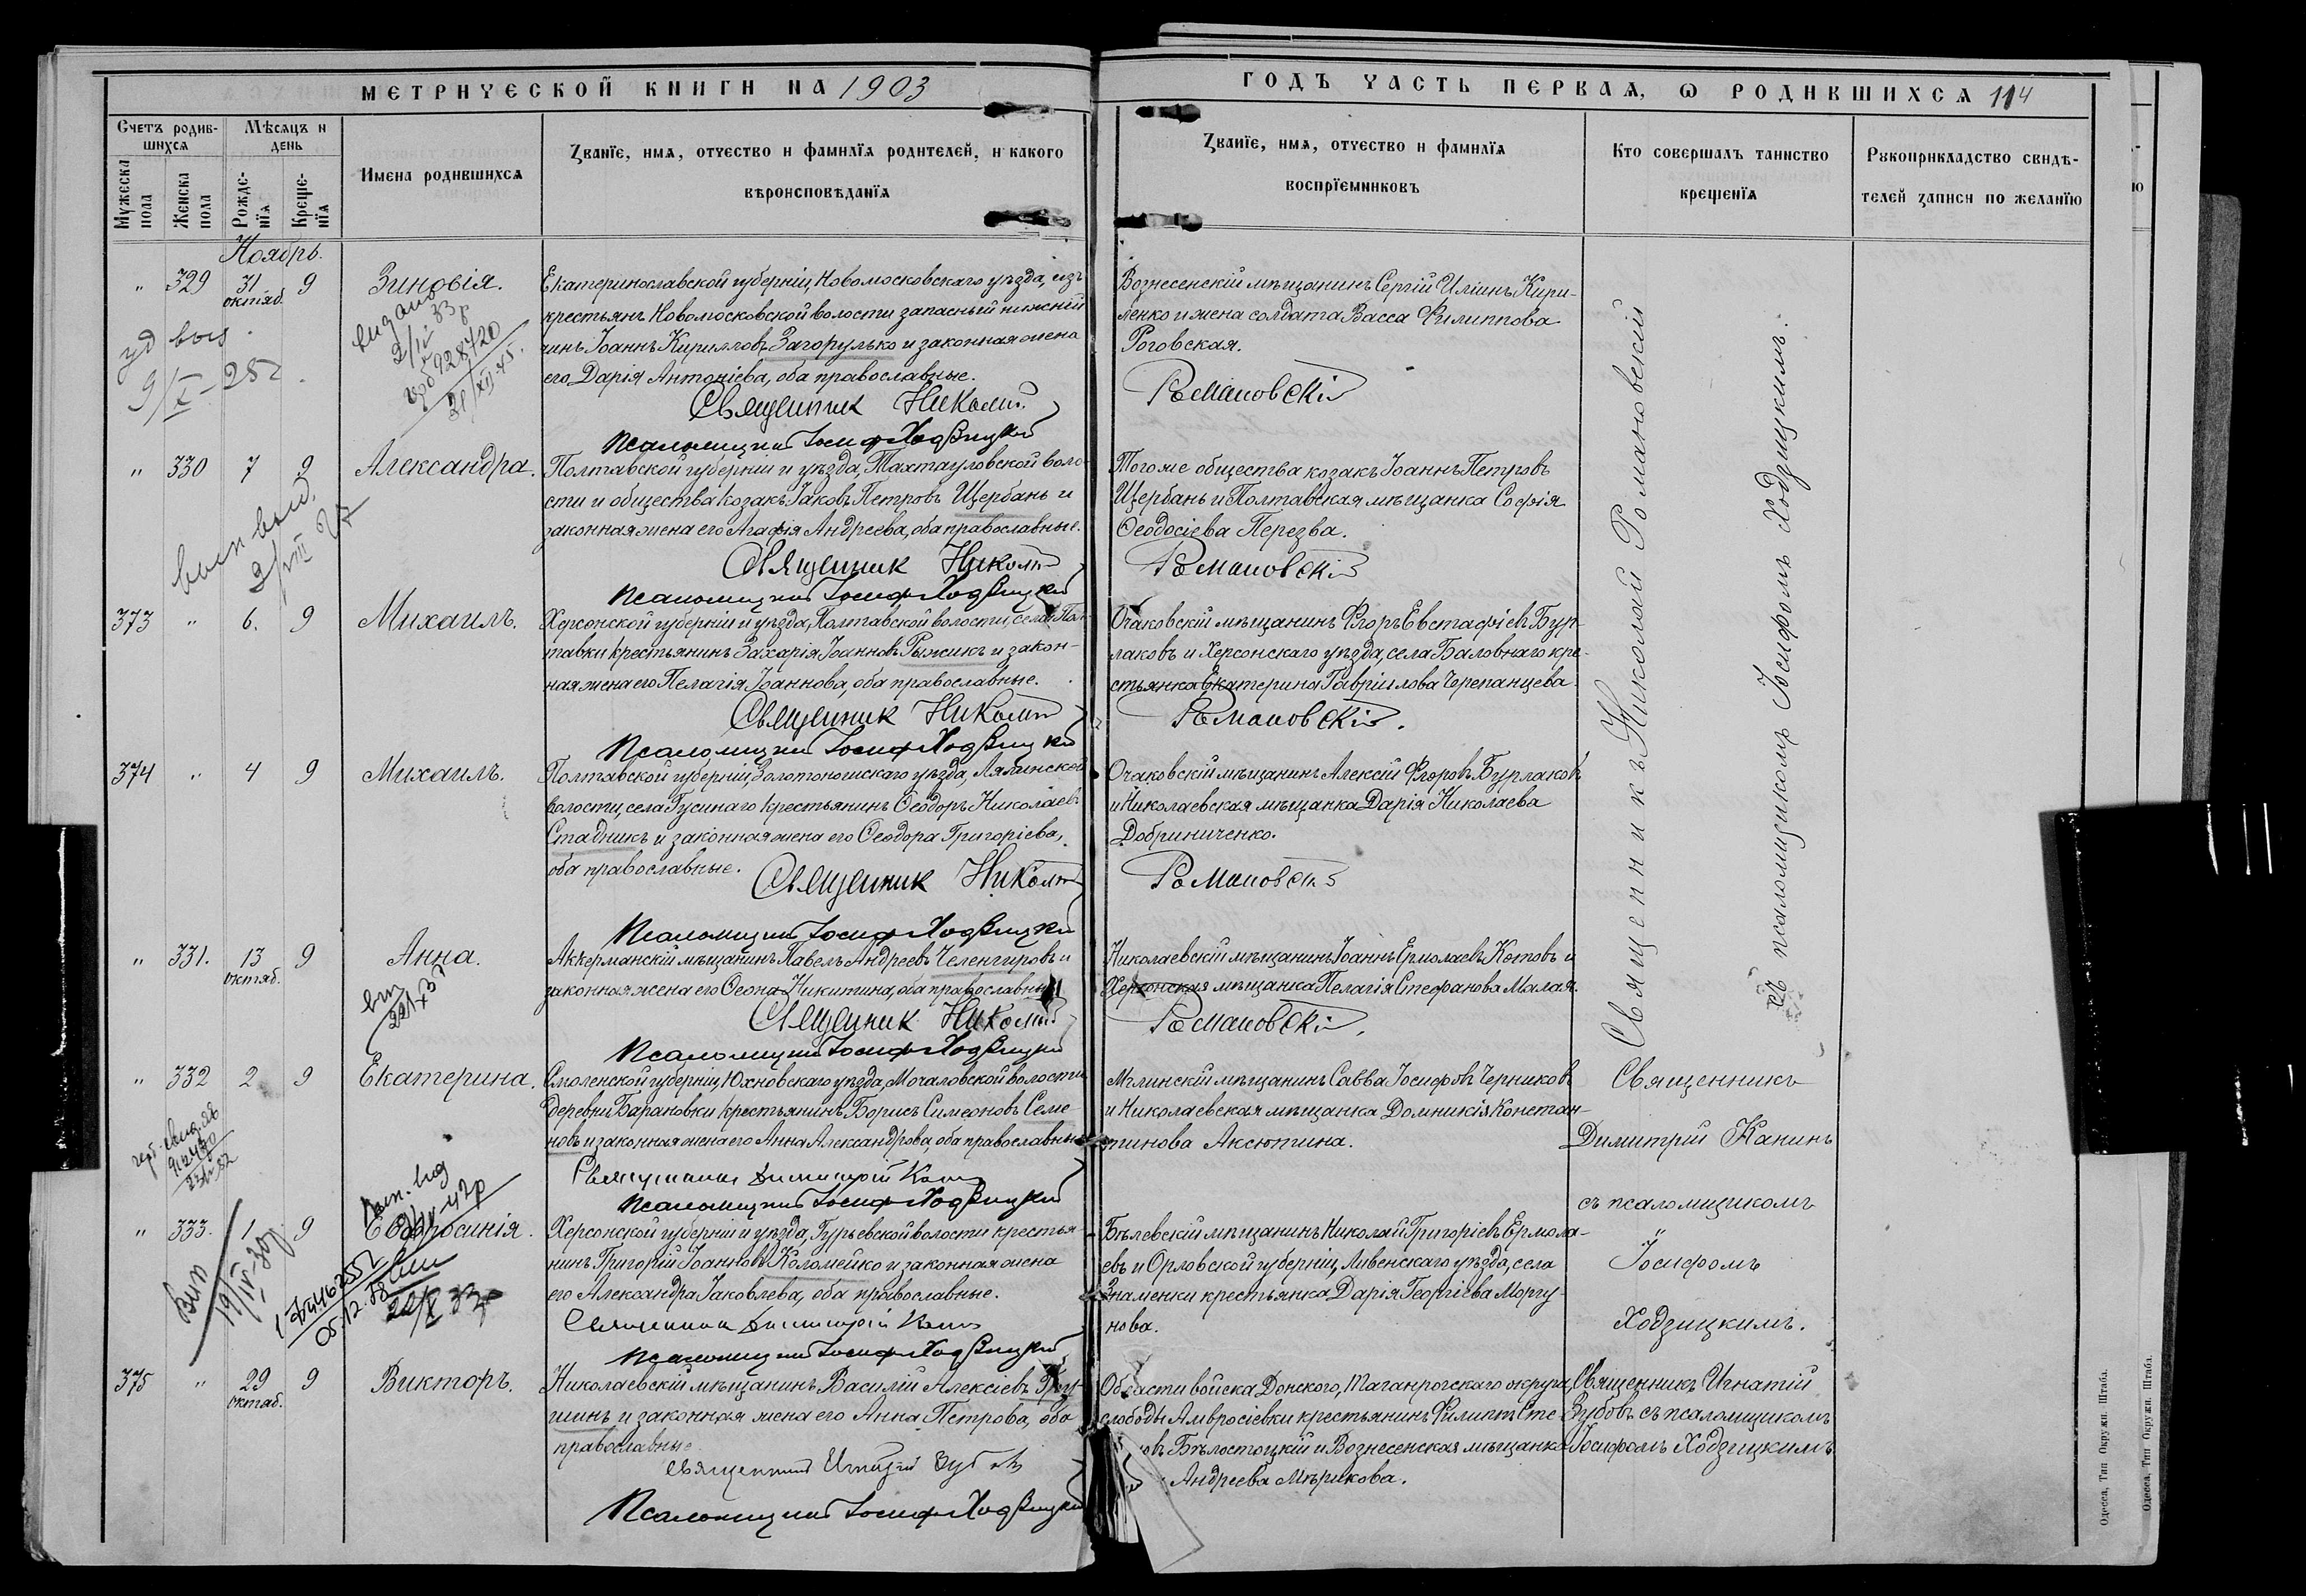 МЕТРИЧЕСКОЙ КНИГИ НА 1903
ГОДЪ ЧАСТЬ ПЕРВАЯ, Ѡ РОДИВШИХСЯ 114
Счетъ родив-
шихся
Мѣсяцъ и
день
Мужеска
пола
Женска
пола
Рожде-
нія
Креще-
нія
Имена родившихся
Званіе, имя, отчество и фамилія родителей, и какого
вѣроисповѣданія
Званіе, имя, отчество и фамилія
воспріемниковъ
Кто совершалъ таинство
крещенія
Рукоприкладство свидѣ-
телей записи по желанію
Ноябрь.
" 329 31 октяб. 9 Зиновія.
Екатеринославской губерніи, Новомосковскаго уѣзда, изъ
крестьянъ Новомосковской волости запасный нижній
чинъ Іоаннъ Кирилловъ Загорулько и законная жена
его Дарія Антоніева, оба православные.
Священник Николай
Псаломщикъ Іосифъ Ходзицкій
Вознесенскій мѣщанинъ Сергій Иліинъ Кири-
ленко и жена солдата Васса Филиппова
Роговская.
Романовскій
9/X-28г.
" 330 7 9 Александра.
Полтавской губерніи и уѣзда, Тахтауловской воло-
сти и общества козакъ Іаковъ Петровъ Щербань и
законная жена его Агафія Андреева, оба православные.
Священник Николай
Псаломщикъ Іосифъ Ходзицкій
Тогоже общества козакъ Іоаннъ Петровъ
Щербань и Полтавская мѣщанка Софія
Ѳеодосіева Перезва.
Романовскій
373 " 6. 9 Михаилъ.
Херсонской губерніи и уѣзда, Полтавской волости, села Пол-
тавки крестьянинъ Захарія Іоанновъ Рыжикъ и закон-
ная жена его Пелагія Іоаннова, оба православные.
Священник Николай
Псаломщикъ Іосифъ Ходзицкій
Очаковскій мѣщанинъ Флоръ Евстафіевъ Бур-
лаковъ и Херсонскаго уѣзда, села Баловнаго кре-
стьянка Екатерина Гавріилова Черепанцева.
Романовскій.
374 " 4 9 Михаилъ.
Полтавской губерніи, Золотоношскаго уѣзда, Лялинской
волости, села Гусинаго крестьянинъ Ѳеодоръ Николаевъ
Стадникъ и законная жена его Ѳеодора Григоріева,
оба православные.
Священник Николай
Псаломщикъ Іосифъ Ходзицкій
Очаковскій мѣщанинъ Алексій Флоровъ Бурлаковъ
и Николаевская мѣщанка Дарія Николаева
Добриниченко.
Романовскій
" 331. 13 октяб. 9 Анна.
Аккерманскій мѣщанинъ Павелъ Андреевъ Челенгировъ и
законная жена его Ѳеона Никитина, оба православные
Священник Николай
Псаломщикъ Іосифъ Ходзицкій
Николаевскій мѣщанинъ Іоаннъ Ермолаевъ Котовъ и
Херсонская мѣщанка Пелагія Стефанова Малая.
Романовскій.
Священникъ Николай Романовскій
съ псаломщикомъ Іосифомъ Ходзицкимъ.
" 332 2 9 Екатерина.
Смоленской губерніи, Юхновскаго уѣзда, Мочаловской волости
деревни Барановки крестьянинъ Борисъ Симеоновъ Семе-
новъ и законная жена его Анна Александрова, оба православные
Священникъ Димитрій Канинъ
Псаломщикъ Іосифъ Ходзицкій
Мглинскій мѣщанинъ Савва Іосифовъ Черниковъ
и Николаевская мѣщанка Домникія Констан-
тинова Аксютина.
Священникъ
Димитрій Канинъ
съ псаломщикомъ
Іосифомъ
Ходзицкимъ.
" 333. 1 9 Евфросинія.
Херсонской губерніи и уѣзда, Гурьевской волости крестья-
нинъ Григорій Іоанновъ Коломейко и законная жена
его Александра Іаковлева, оба православные.
Священникъ Димитрій Канинъ
Псаломщикъ Іосифъ Ходзицкій
Бѣлевскій мѣщанинъ Николай Григоріевъ Ермола-
евъ и Орловской губерніи, Ливенскаго уѣзда, села
Знаменки крестьянка Дарія Георгіева Моргу-
нова.
375 " 29 октяб. 9 Викторъ.
Николаевскій мѣщанинъ Василій Алексіевъ
шинъ и законная жена его Анна Петрова, оба
православные
Священникъ Игнатій Зубовъ
Псаломщикъ Іосифъ Ходзицкій
Области войска Донского, Таганрогскаго округа,
слободы Амвросіевки крестьянинъ Филиппъ Сте-
овъ Бѣлостоцкій и Вознесенская мѣщанка
Андреева Мѣрикова.
Священникъ Игнатій
Зубовъ съ псаломщикомъ
Іосифомъ Ходзицкимъ
Одесса, Тип Окружн. Штаба.
Одесса, Тип Окружн. Штаба.